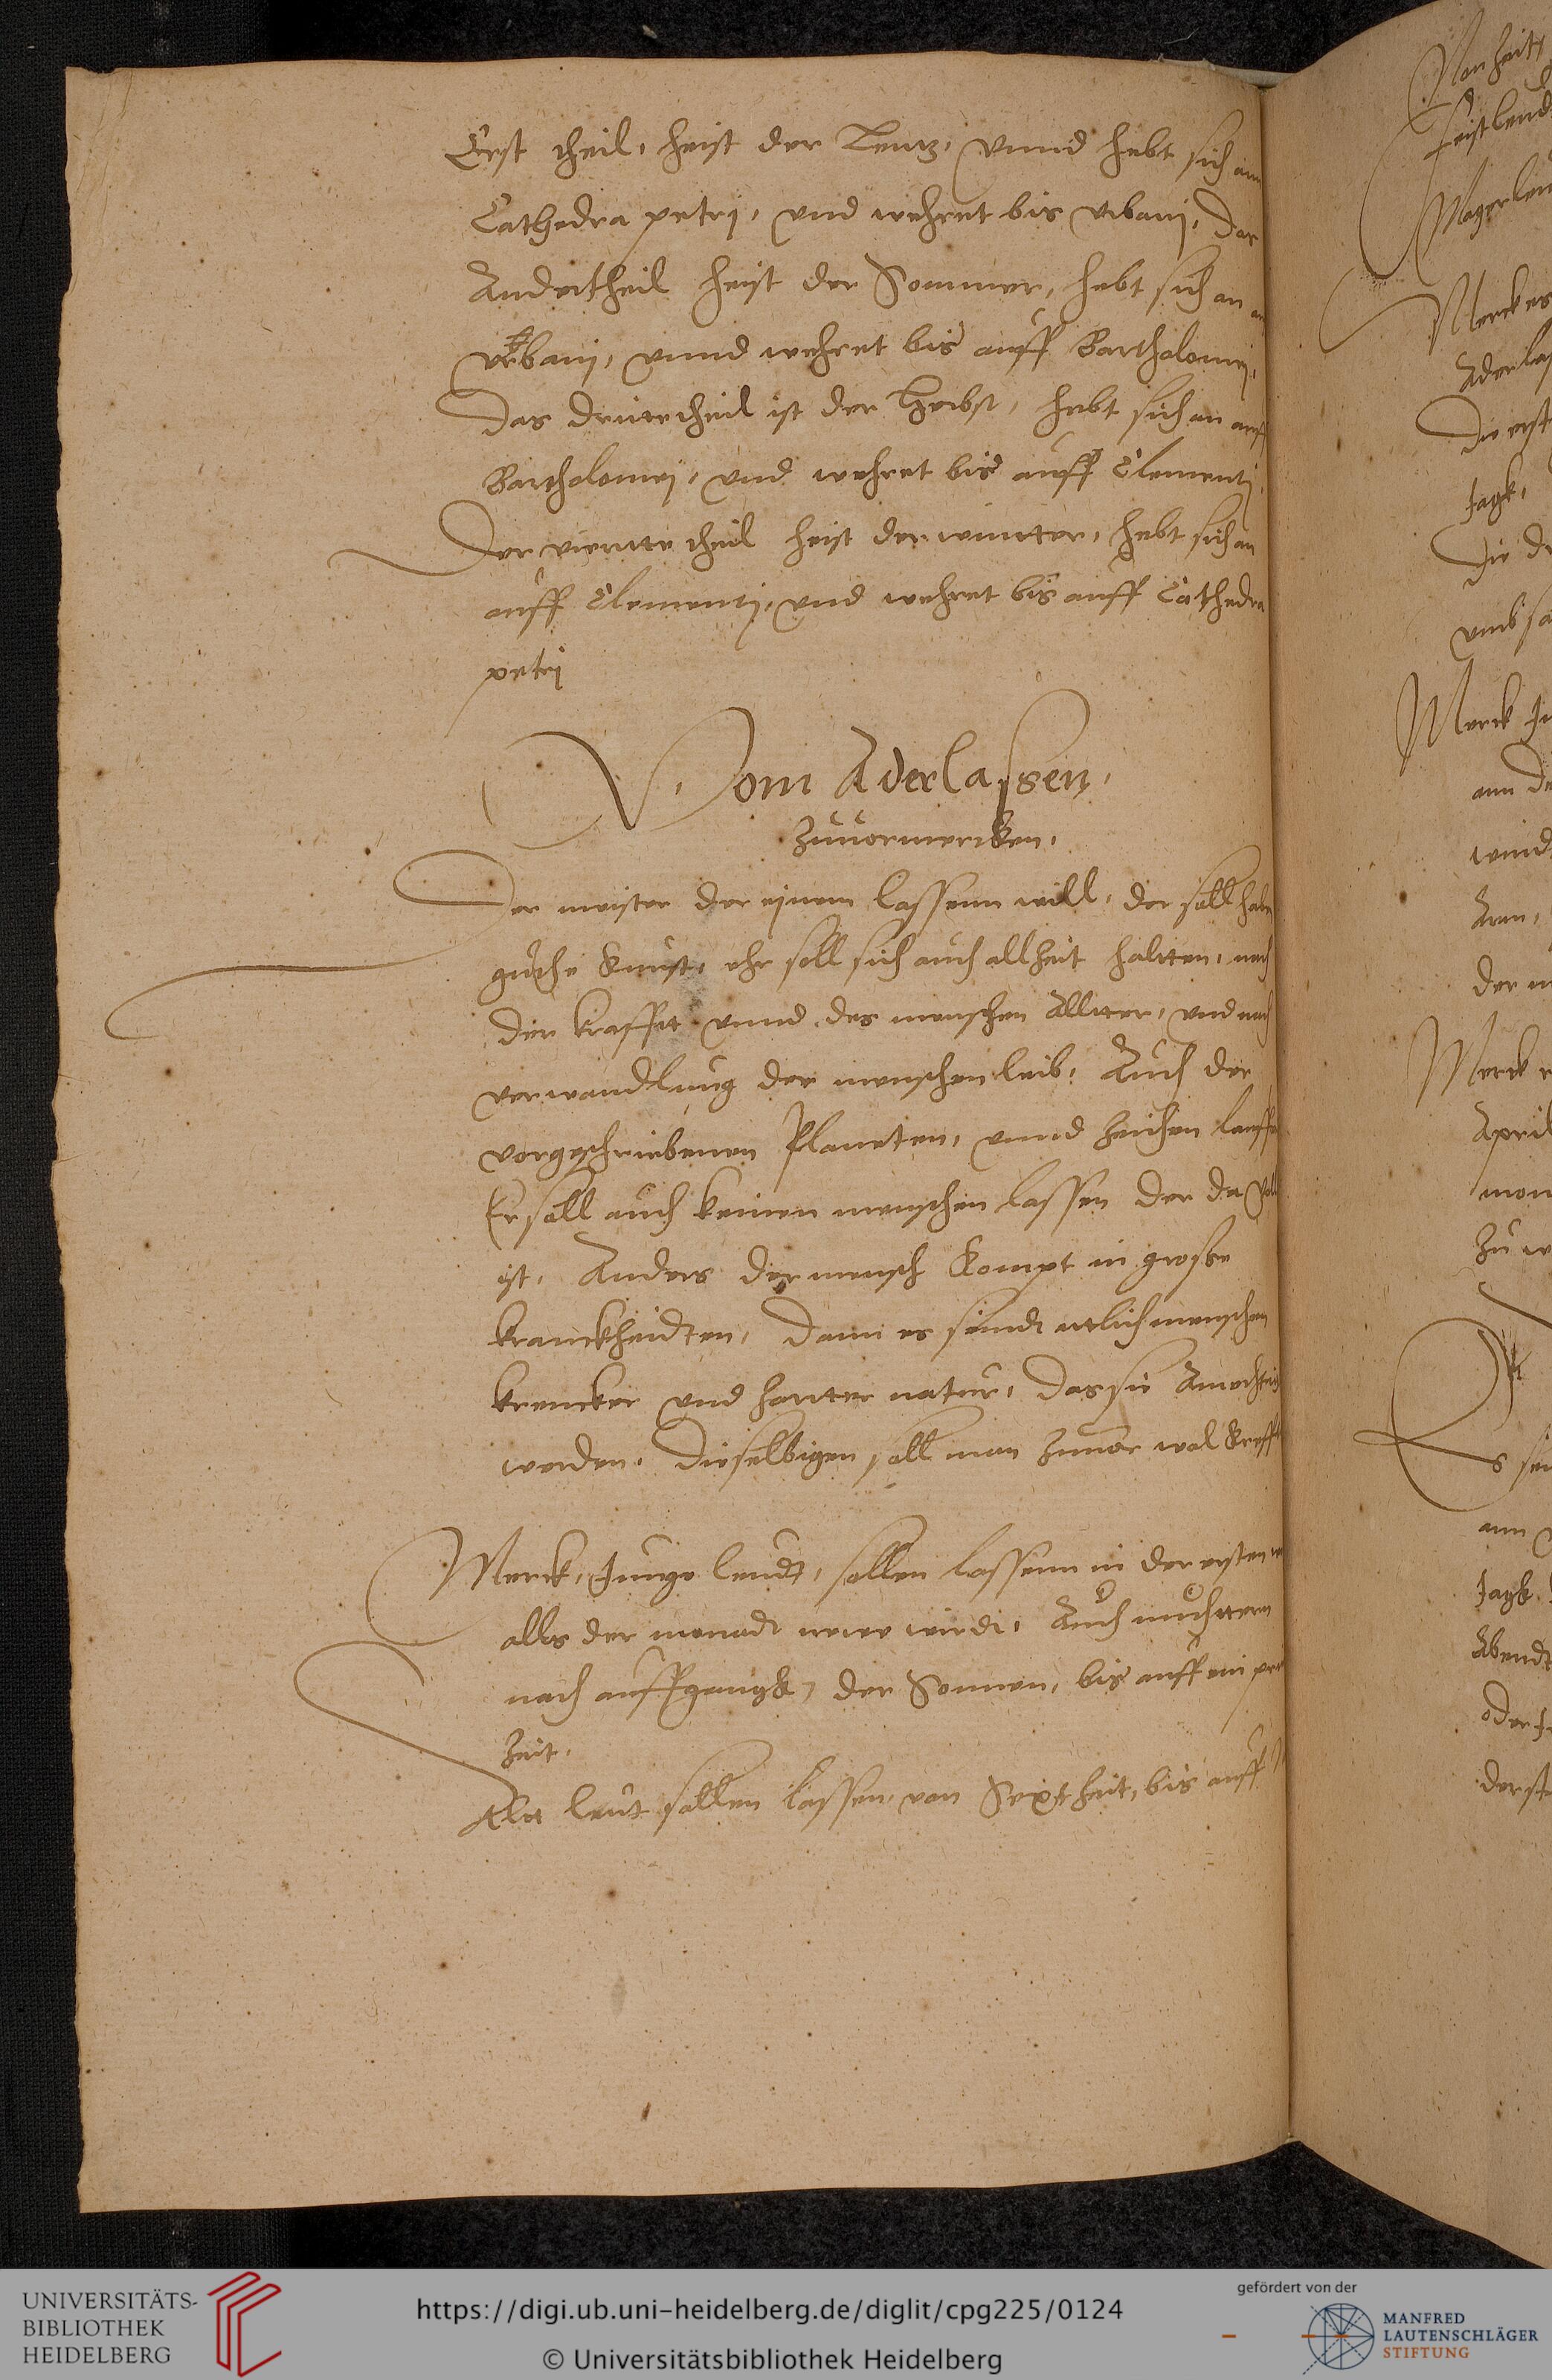 Erst theil, heist der Lentz, vnnd hebt sich ann
Cathedra petrj, vnd wehret bis vrbanj, Das
Andertheil heist der Sommer, hebt sich an
vrbanj, vnnd wehret bis auff Bartholomej,
Das drittetheil ist der Herbst, hebt sich an auff
Bartholomej, vnd wehret bis auff Clementj
Der viertte theil heist der wintter, hebt sich an
auff Clementj, vnd wehret bis auff Cathedra
petrj
Vom Aderlassen,
Zuuormercken,
Der meister der einem lassenn will, der soll haben
guthe Kunst, ehr soll sich auch allzeit haltten, nach
der krafft vnnd des menschen Allter, vnd nach
verwandlung der menschen leib, Auch der
vorgeschriebenen Planeten, vnnd zeichen lauff
Er soll auch keinen menschen lassen der da voll
ist, Anders der mensch Kompt in groste
kranckheidten, Dann es sindt ettlich menschen
krencker vnd hartter natur, das sie Amechtich
werden, Dieselbigen soll man zuuor wol Krefft
Merck, Junge leudt, sollen lassenn in der ersten
alls der monadt newe wirdt, Auch nuchttern
nach auffgangk, der Sonnen, bis auff ein
zeit,
Alt leut sollen lassen, von Sext zeit, bis auff
Von zeitt
feistleud
Magerleu
Merck es
Aderlas
Die erst
Jagk,
Die dr
vmb sa
Merck In
ann de
wind
Arm,
der m
Merck
April
mon
zu w
Es sei
ann
Jagk
Abendt
oder
der st
UNIVERSITÄTS-
BIBLIOTHEK
HEIDELBERG
https://digi.ub.uni-heidelberg.de/diglit/cpg225/0124
© Universitätsbibliothek Heidelberg
gefördert von der
MANFRED
LAUTENSCHLÄGER
STIFTUNG